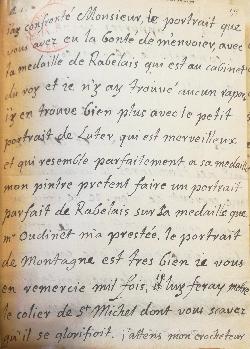 j'ay confronté Monsieur, le portrait que
vous avez eu la bonté de m'envoier, avec
la medaille de Rabelais qui est au cabinet
du roy et ie n'y ay trouvé aucun rapor,
j'y en trouve bien plus avec le petit
portrait de Luter, qui est merveilleux
et qui resemble parfaitement a sa medaille
mon pintre pretent faire un portrait
parfait de Rabelais sur la medaille que
mr Oudinet m'a prestée, le portrait
de Montagne est tres bien ie vous
en remercie mil fois, luy feray mettre
le colier de St Michel dont vous scavez
qu'il se glorifioit. j'attens mon crocheteur